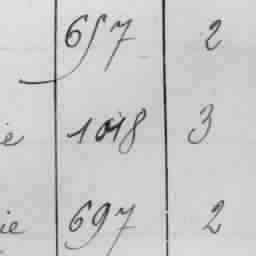 657 2
ie 1018 3
ie 697 2